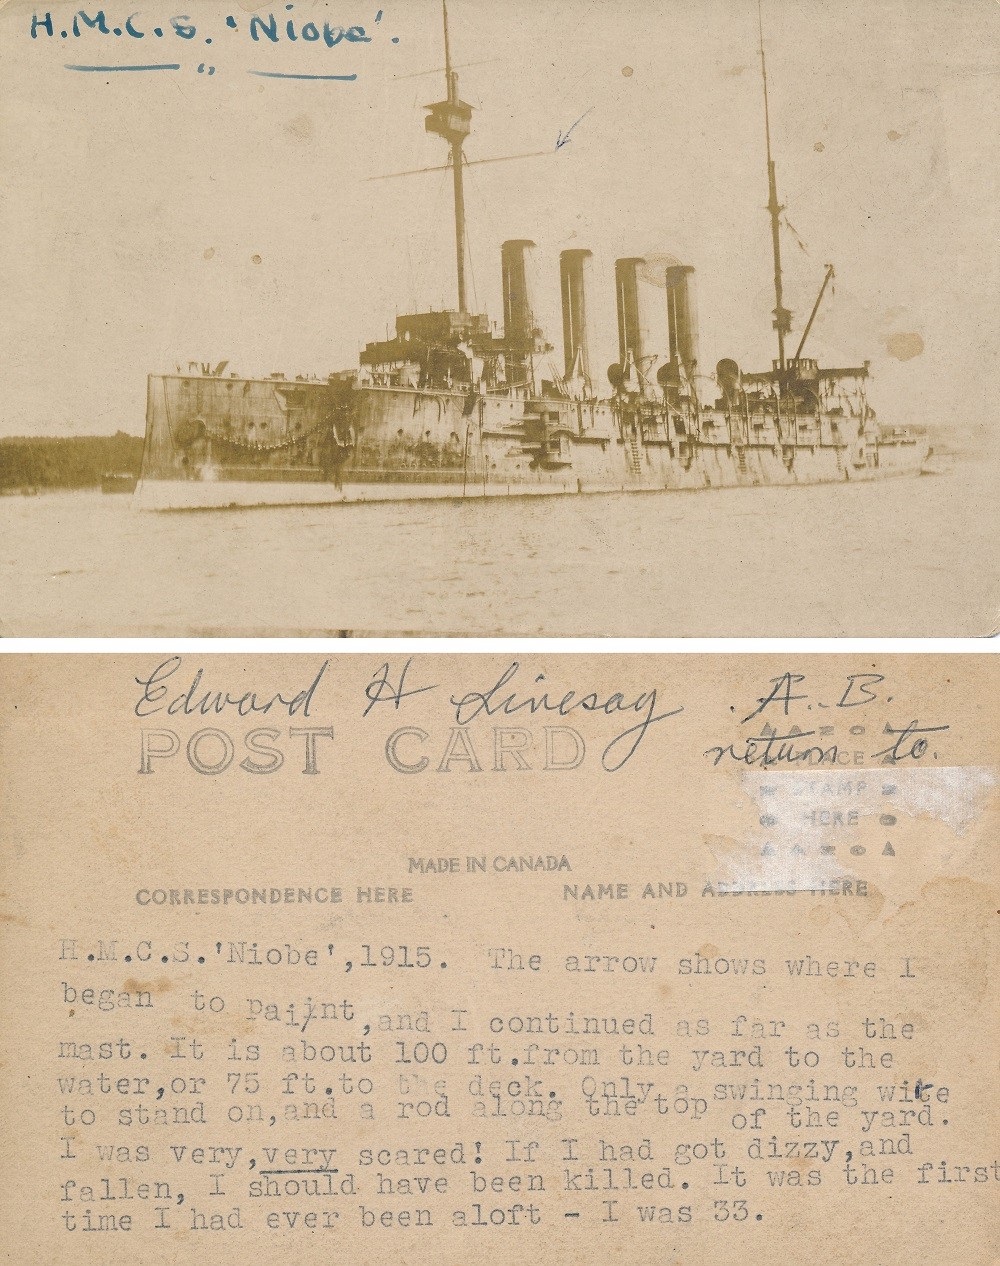 H.M.C.S. 'Niobe'.
"
Edward H Livesay A.B.
return to.
POST CARD
PLACE
STAMP
HERE
MADE IN CANADA
CORRESPONDENCE HERE
NAME AND ADDRESS HERE
H.M.C.S.'Niobe',1915. The arrow shows where I
began to paint,and I continued as far as the
mast. It is about 100 ft.from the yard to the
water,or 75 ft.to the deck. Only a swinging wire
to stand on,and a rod along the top of the yard.
I was very,very scared! If I had got dizzy,and
fallen, I should have been killed. It was the first
time I had ever been aloft - I was 33.